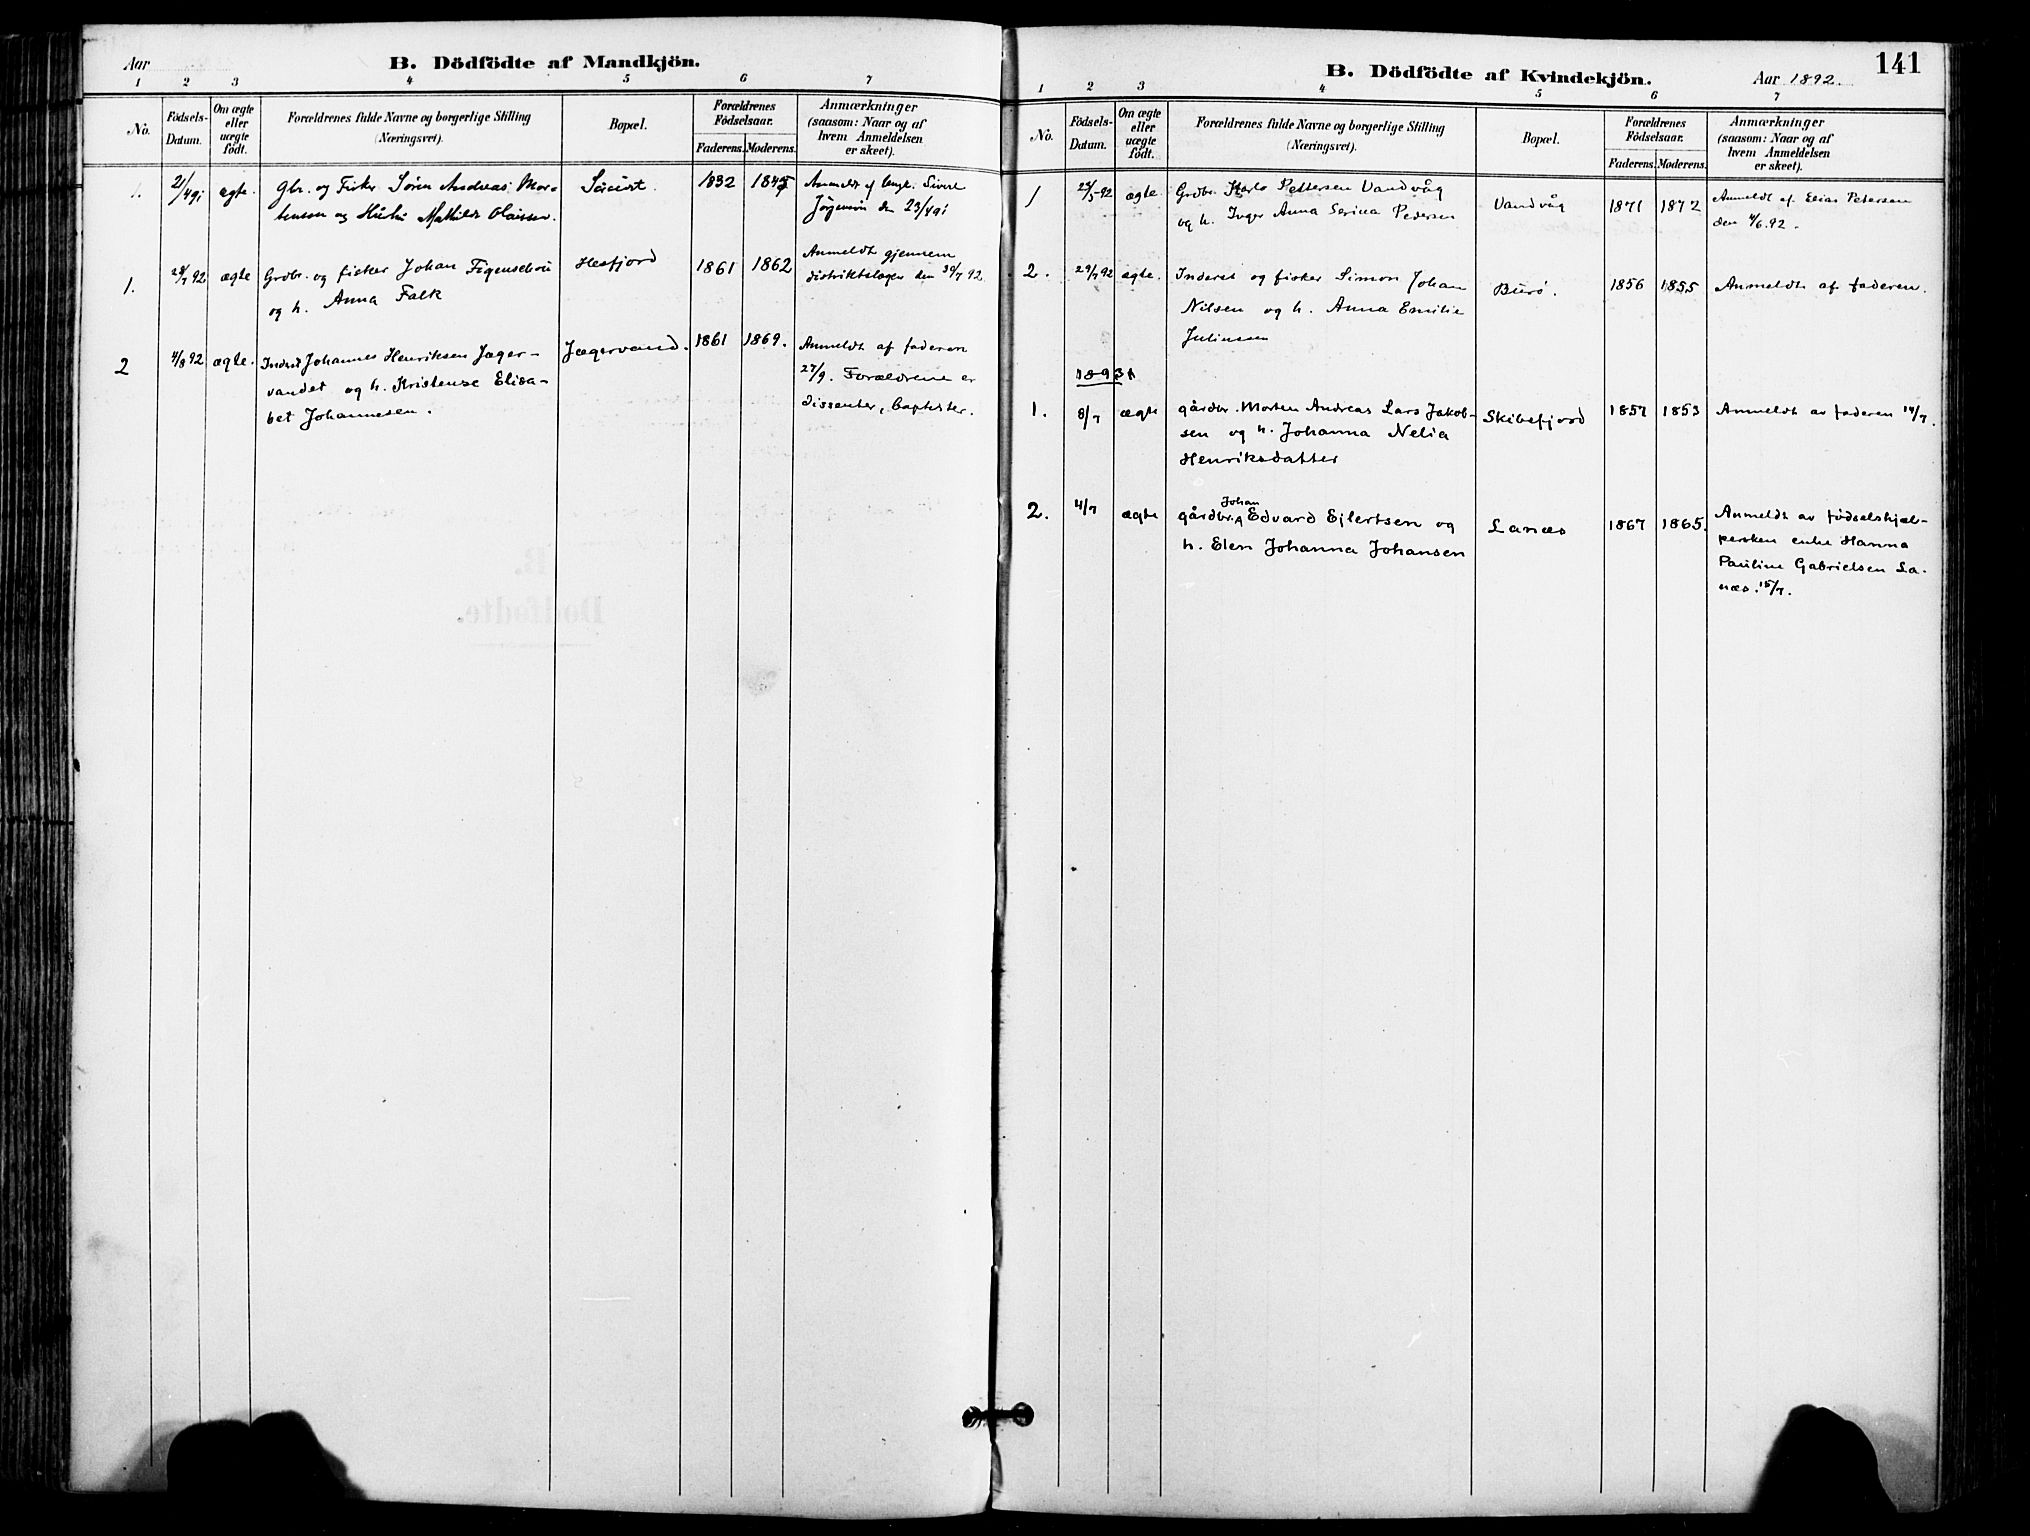 Aar
B. Dödfödte af Mandkjön.
1 2 3 4 5 6 7
No.
Födsels-
Datum.
Om ægte
eller
uægte
födt.
Forældrenes fulde Navne og borgerlige Stilling
(Næringsvei).
Bopæl.
Forældrenes
Födselsaar.
Faderens. Moderens.
Anmærkninger
(saasom: Naar og af
hvem Anmeldelsen
er skeet).
1. 21/4 91 ægte. Gbr. og Fisker Søren Andreas Mor-
tensen og Hustru Mathilde Olaissen.
1832
Jørgensen den 23/4 91
1. 92 ægte Grdbr. og fisker Johan Figenschou
og h. Anna Falk
Hesfjord
1861 1862
Anmeldt gjennem
distriktslægen den 30/7 92
2 4/8 92 ægte. Indrst Johannes Henriksen Jæger-
vandet og h. Kristense Elisa-
bet Johannesen.
Jægervand.
1861 1869.
Anmeldt af faderen
27/9. Forældrene er
dissenter, baptister.
B.
Dødfødte.
141
B. Dödfödte af Kvindekjön.
Aar 1892.
1 2 3 4 5 6 7
No.
Födsels-
Datum.
Om ægte
eller
uægte
födt.
Forældrenes fulde Navne og borgerlige Stilling
(Næringsvei).
Bopæl.
Forældrenes
Födselsaar.
Faderens. Moderens.
Anmærkninger
(saasom: Naar og af
hvem Anmeldelsen
er skeet).
1 25/5-92 ægte Grdbr. Karlo Pettersen Vandvåg
og h. Inger Anna Serina Pedersen
Vandvåg
1871 1872
Anmeldt af Elias Petersen
den 4/6.92.
2. 29/7 92 ægte. Inderst og fisker Simon Johan
Nilsen og h. Anna Emilie
Juliussen
Burø.
1856 1855
Anmeldt af faderen.
1893
1. 8/7 ægte gårdbr. Morten Andreas Lars Jakob-
sen og h. Johanna Nelia
Henriksdatter
Skibsfjord
1857 1853
Anmeldt av faderen 14/7.
Johan
2. 4/7 ægte gårdbr. Edvard Ejlertsen og
h. Elen Johanna Johansen
Lanæs
1867 1865.
Anmeldt av fødselshjæl-
persken enke Hanna
Pauline Gabrielsen La-
næs. 15/7.